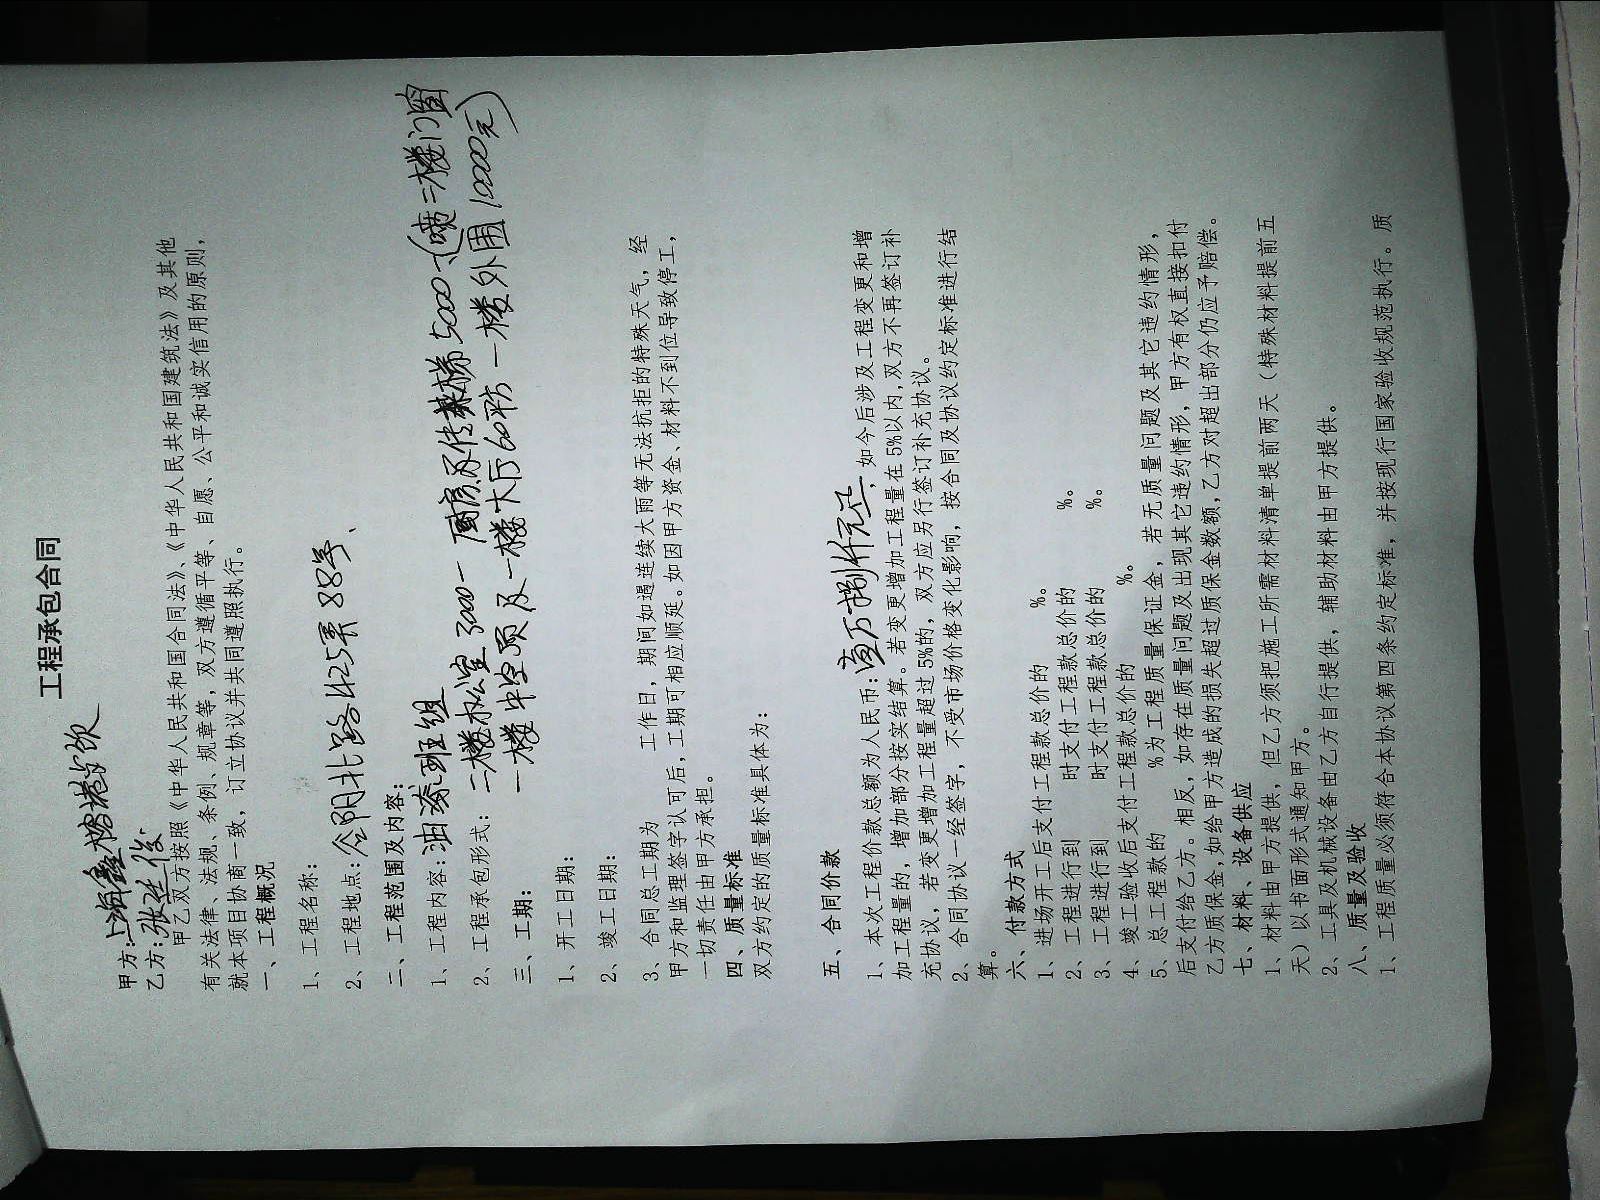 工程承包合同
甲方:上海鑫榕港餐饮
乙方:张延俊
甲乙双方按照《中华人民共和国合同法》、《中华人民共和国建筑法》及其他
有关法律、法规、条例、规章等，双方遵循平等、自愿、公平和诚实信用的原则，
就本项目协商一致，订立协议并共同遵照执行。
一、工程概况
1、工程名称：
2、工程地点：合阴北路425弄88号、
二、工程范围及内容：
1、工程内容：油漆班组
2、工程承包形式：二楼松室3000一 厨房及传菜梯5000、(喷二楼门窗
三、工期： 一楼中空顶及一楼大厅60平方 一楼外围10000元)
1、开工日期：
2、竣工日期：
3、合同总工期为 工作日，期间如遇连续大雨等无法抗拒的特殊天气，经
甲方和监理签字认可后，工期可相应顺延。如因甲方资金、材料不到位导致停工，
一切责任由甲方承担。
四、质量标准
双方约定的质量标准具体为：
五、合同价款
1、本次工程价款总额为人民币：壹万捌仟元正，如今后涉及工程变更和增
加工程量的，增加部分按实结算。若变更增加工程量在5%以内,双方不再签订补
充协议，若变更增加工程量超过5%的，双方应另行签订补充协议。
2、合同协议一经签字，不受市场价格变化影响，按合同及协议约定标准进行结
算。
六、付款方式
1、进场开工后支付工程款总价的 %。
2、工程进行到 时支付工程款总价的 %。
3、工程进行到 时支付工程款总价的 %。
4、竣工验收后支付工程款总价的 %。
5、总工程款的 %为工程质量保证金，若无质量问题及其它违约情形，
后支付给乙方。相反，如存在质量问题及出现其它违约情形，甲方有权直接扣付
乙方质保金,如给甲方造成的损失超过质保金数额,乙方对超出部分仍应予赔偿。
七、材料、设备供应
1、材料由甲方提供，但乙方须把施工所需材料清单提前两天（特殊材料提前五
天）以书面形式通知甲方。
2、工具及机械设备由乙方自行提供，辅助材料由甲方提供。
八、质量及验收
1、工程质量必须符合本协议第四条约定标准，并按现行国家验收规范执行。质